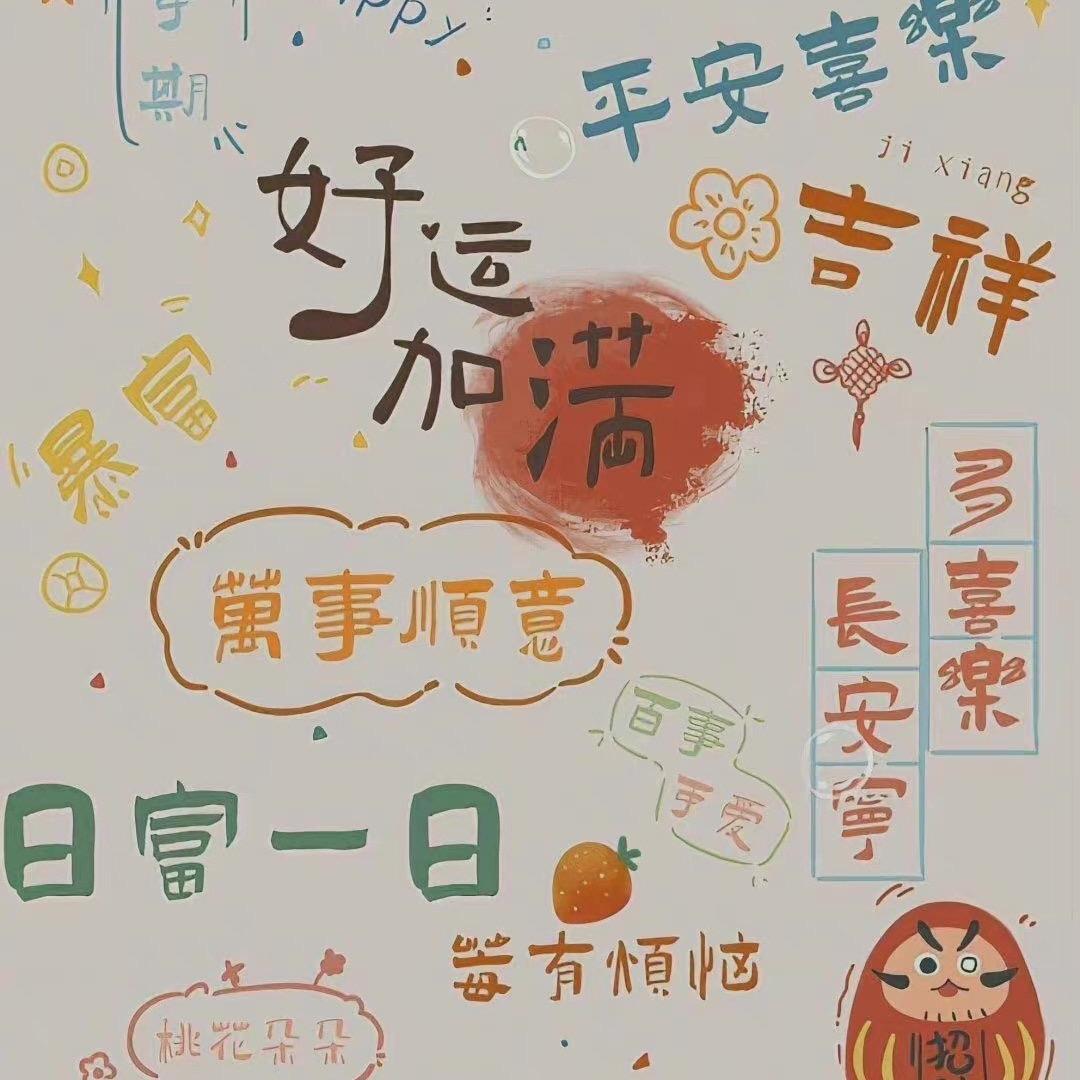 期
平安喜樂
ji xiang
吉祥
好运
加满
暴富
萬事順意
多喜樂
長安寧
百事
可爱
日富一日
莓有煩恼
桃花朵朵
招